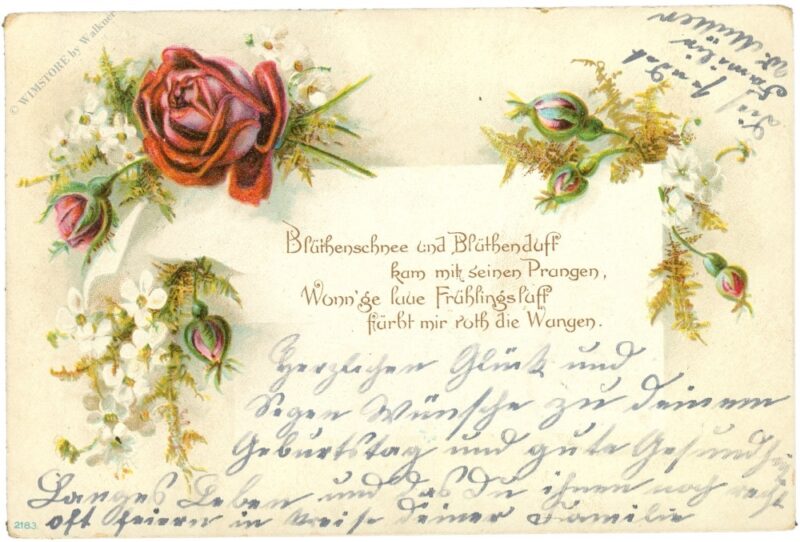 © WIMSTORE by Walkner
Blüthenschnee und Blüthenduft
kam mit seinen Prangen,
Wonn'ge laue Frühlingsluft
färbt mir roth die Wangen.
Herzlichen Glück und
Segen Wünsche zu deinem
Geburtstag und gute Gesundheit
Langes Leben und das Du ihnen noch recht
oft feiern in Kreise deiner Familie
Dies sendet
Familie
2183